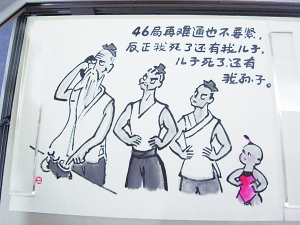 46局再难通也不要紧，
反正我死了还有我儿子，
儿子死了还有
我孙子。